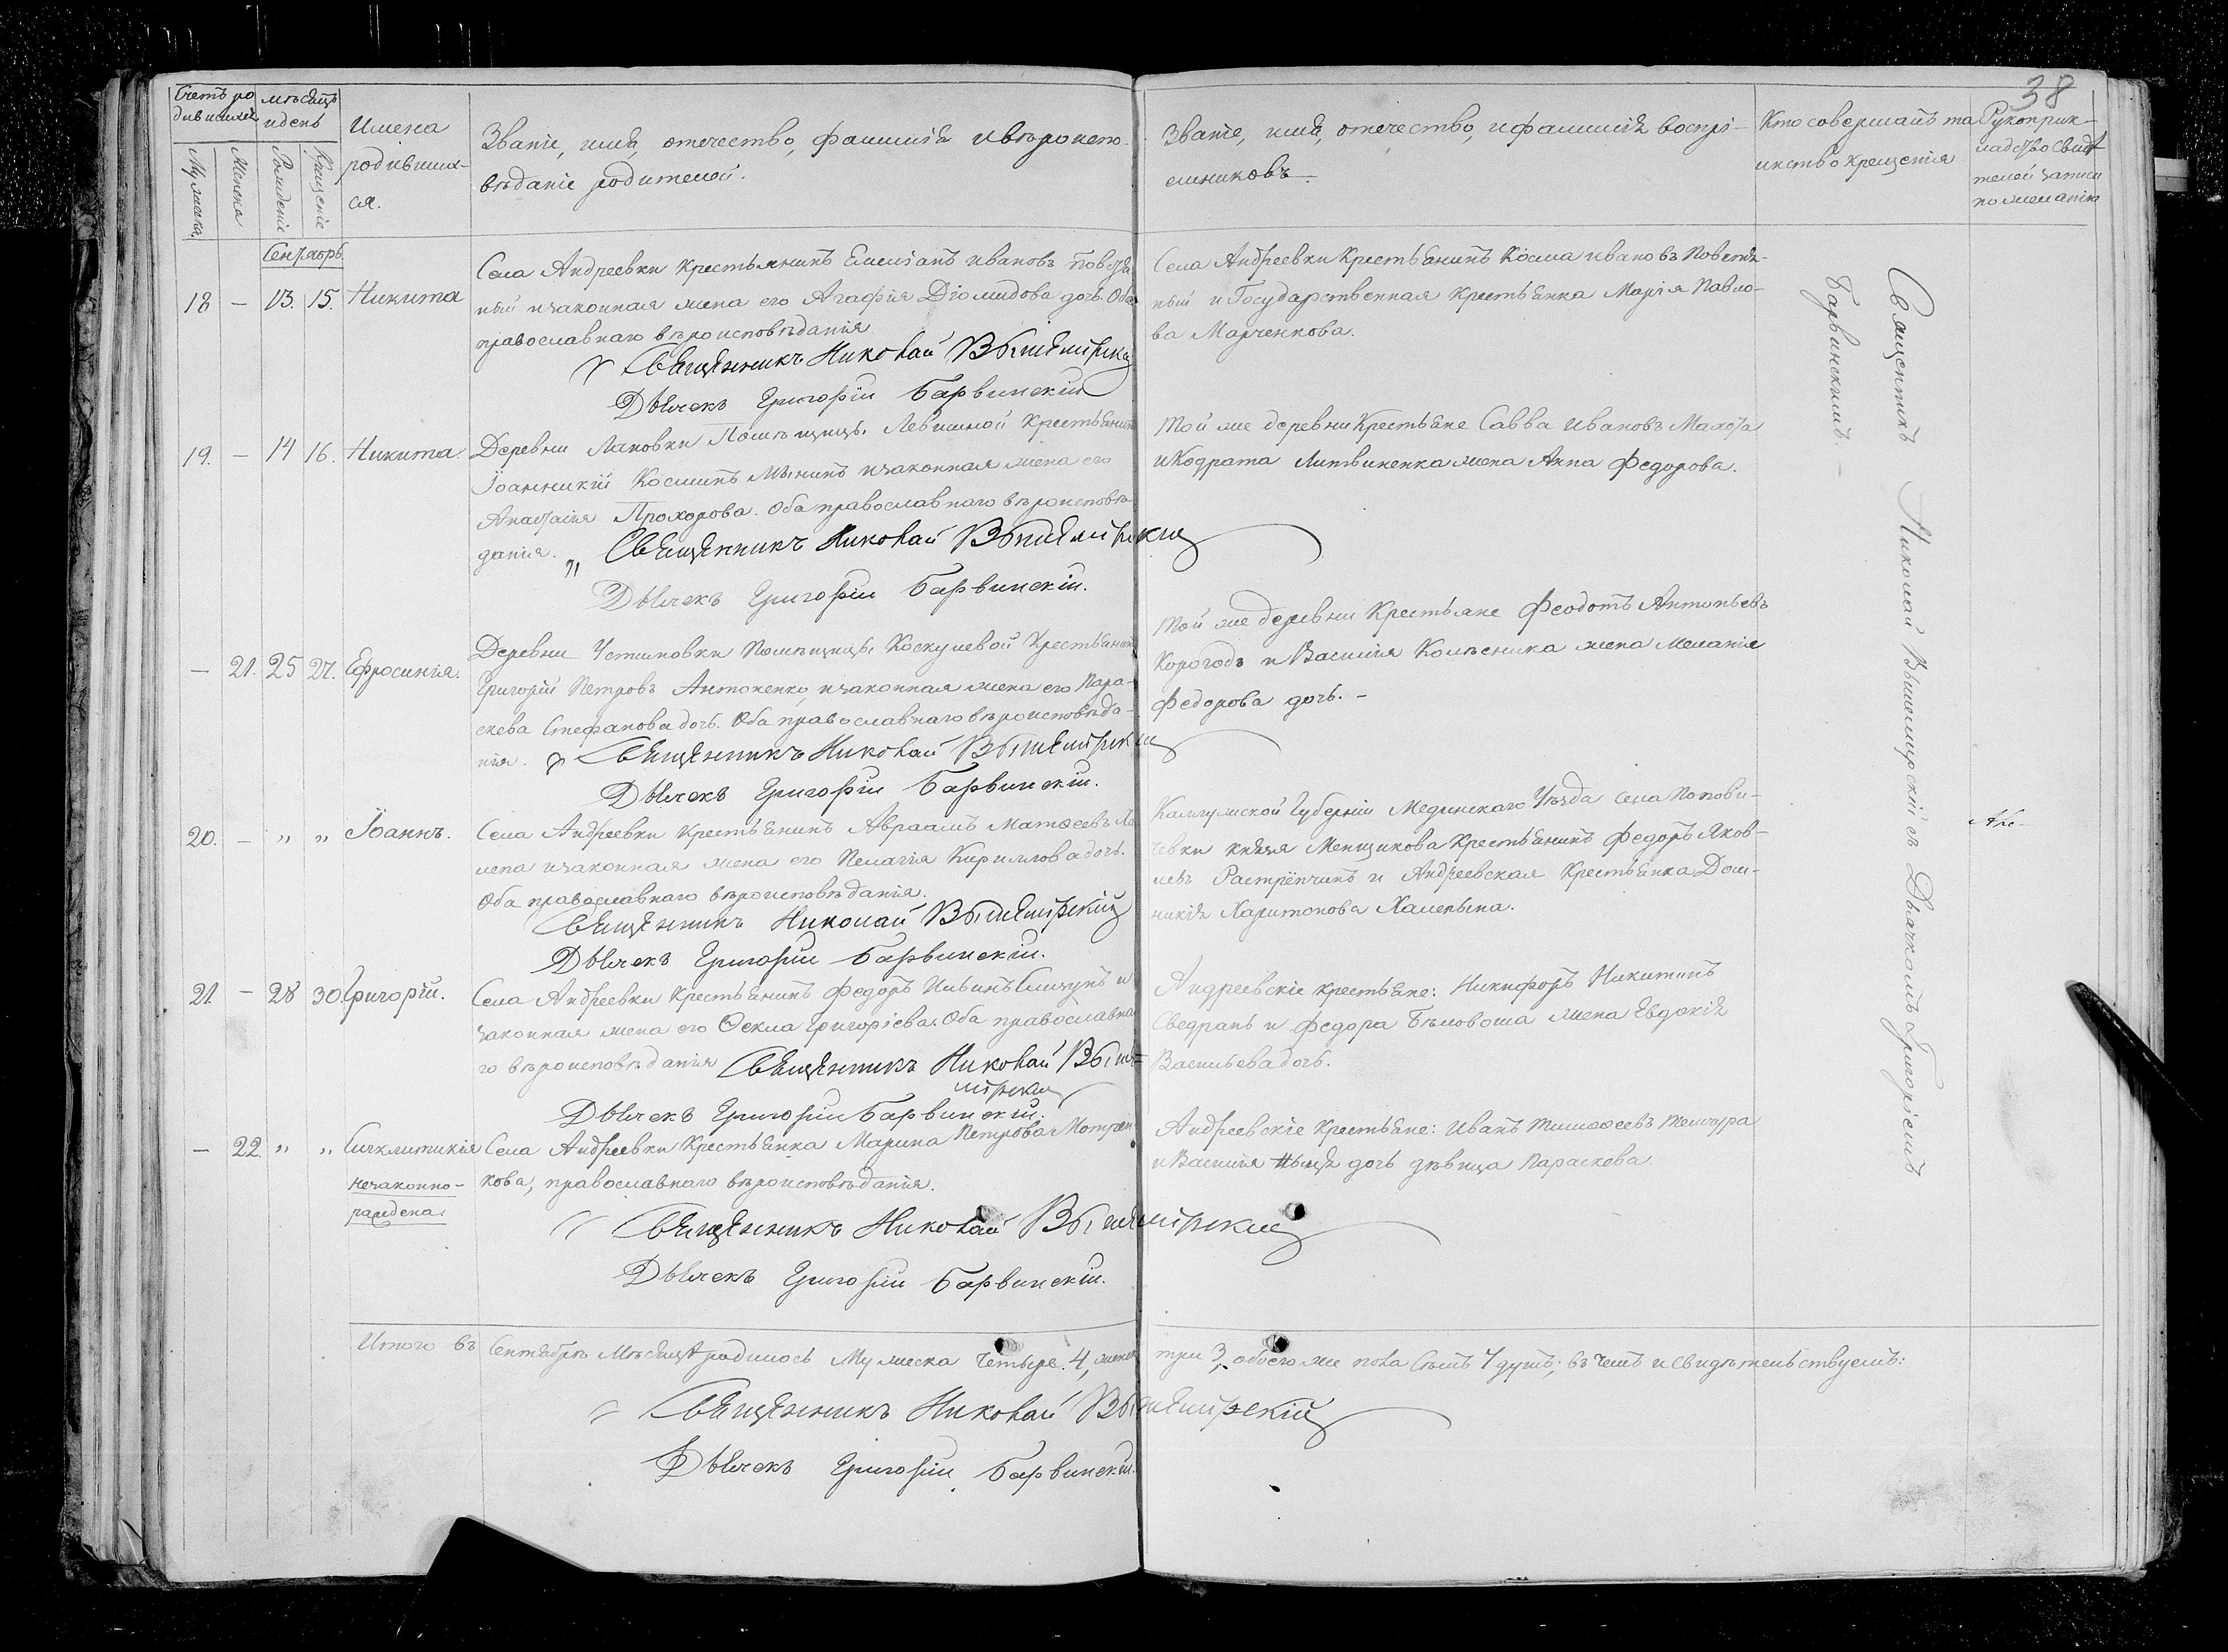 38
Счетъ ро
дившихся
мѣсяцъ
и день
Имена
родивших-
ся.
Званіе, имя, отечество, фамилія и вѣроиспо-
вѣданіе родителей.
Званіе, имя, отечество, и фамилія воспрі-
емниковъ.
Кто совершалъ та
инство крещенія
Рукоприк-
ладство свидѣ
телей записи
по желанію
Мужеска
Женска
Рожденіе
Крещеніе
Сентябрь
18 — 13. 15. Никита
Села Андреевки крестьянинъ Емеліанъ Ивановъ
ный и законная жена его Агафія Діомидова дочь. Оба
православнаго вѣроисповѣданія
Священникъ Николай Вышемирскій
Дьячекъ Григорій Барвинскій
Села Андреевки Крестьянинъ Косма Ивановъ Повѣтя-
ный и Государственная Крестьянка Марія Павло-
ва Марченкова.
19. — 14 16. Никита.
Деревни Помѣщицы Левшиной Крестьянинъ
Іоанникій Косминъ и законная жена его
Анастасія Прохорова. Оба православнаго вѣроисповѣ-
данія. Священникъ Николай Вышемирскій
Дьячекъ Григорій Барвинскій.
Той же деревни Крестьяне Савва Ивановъ Махота
и Кодрата Литвиненка жена Анна Федорова.
— 21. 25 27. Ефросинія.
Деревни Устиновки Помѣщицы Крестьянинъ
Григорій Петровъ Антоненко, и законная жена его Пара-
скева Стефанова дочь. Оба православнаго вѣроисповѣда-
нія. Священникъ Николай Вышемирскій
Дьячекъ Григорій Барвинскій.
Той же деревни Крестьяне Феодотъ Антоньевъ
Корогодъ и Василія Колѣсника жена Меланія
Федорова дочь. —
20. — " " Іоаннъ.
Села Андреевки Крестьянинъ Авраамъ Матѳеевъ Ха
и законная жена его Пелагія Кириллова дочь.
Оба православнаго вѣроисповѣданія.
Священникъ Николай Вышемирскій
Дьячекъ Григорій Барвинскій.
Калужской Губерніи Медынскаго Уѣзда села
князя Менщикова Крестьянинъ Федоръ Яков-
левъ и Андреевская Крестьянка Дом-
никія Харитонова
21. — 28 30. Григорій.
Села Андреевки Крестьянинъ Федоръ Ильинъ и
законная жена его Ѳекла Григоріева. Оба православна
го вѣроисповѣданія Священникъ Николай Выше=
мирскій
Дьячекъ Григорій Барвинскій.
Андреевскіе крестьяне: Никифоръ Никитинъ
и Федора жена Евдокія
Васильева дочь.
— 22. " " Сигклитикія
незаконно-
рождена
Села Андреевки Крестьянка Марина Петрова
кова, православнаго вѣроисповѣданія.
Священникъ Николай Вышемирскій
Дьячекъ Григорій Барвинскій.
Андреевскіе Крестьяне: Иванъ Тимоѳеевъ
и Василія дочь дѣвица Параскева.
Священникъ Николай Вышемирскій съ Дьячкомъ Григоріемъ
Барвинскимъ. —
Итого въ Сентябрѣ Мѣсяцѣ родилось Мужеска четыре. 4, женска
три 3, обоего же пола семь 7 душъ; въ чемъ и свидѣтельствуемъ:
Священникъ Николай Вышемирскій
Дьячекъ Григорій Барвинскій.